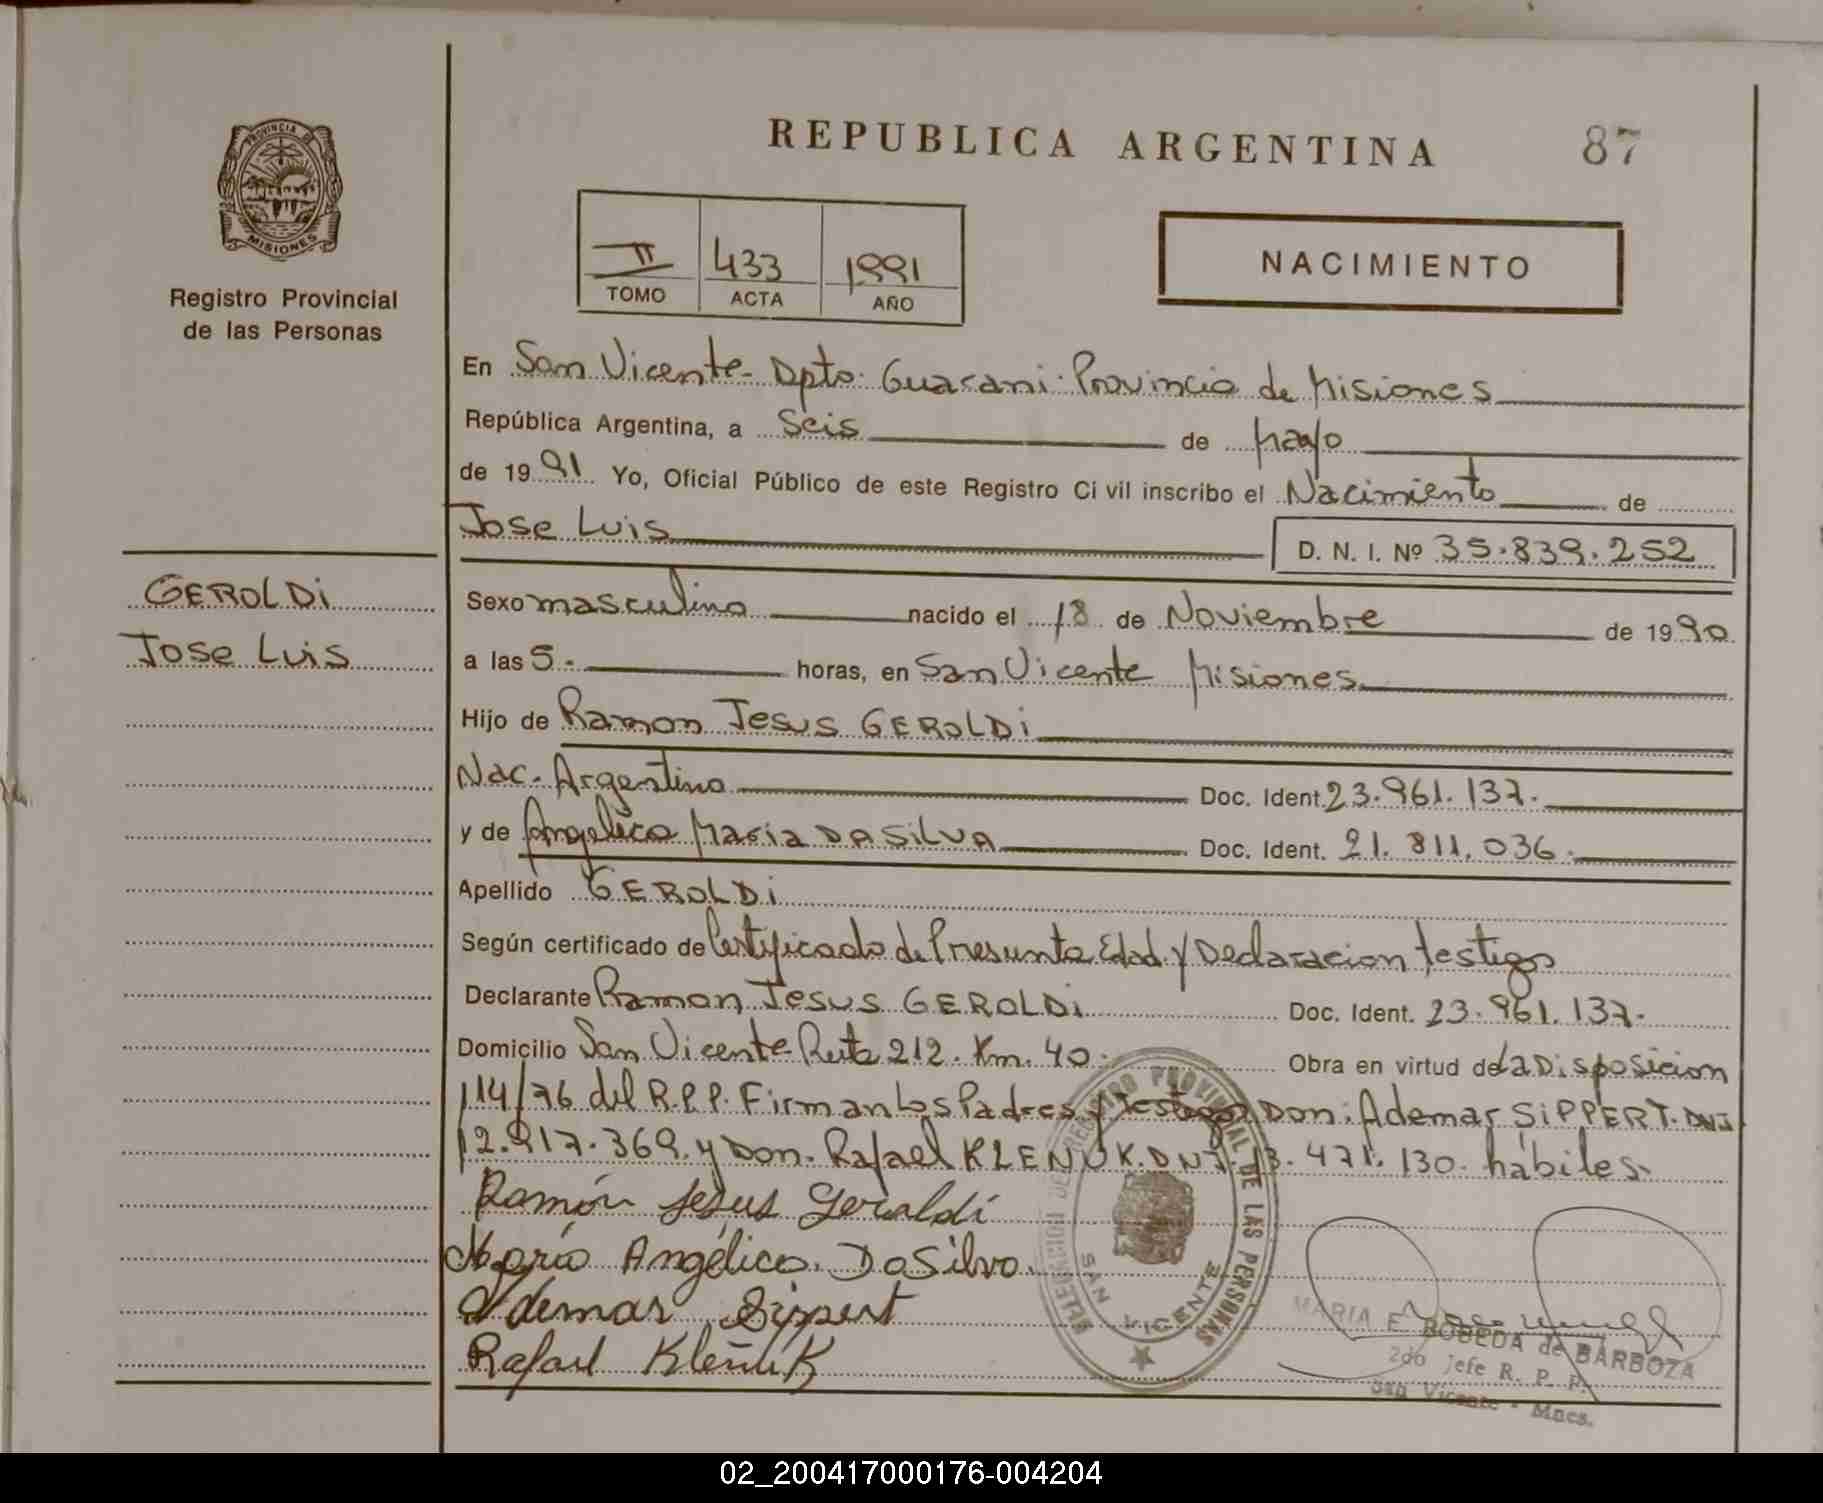 REPUBLICA ARGENTINA
87
PROVINCIA DE
MISIONES
Registro Provincial
de las Personas
II 433 1991
TOMO ACTA AÑO
NACIMIENTO
En San Vicente - Dpto. Guarani. Provincia de Misiones
República Argentina, a Seis de Mayo
de 1991 Yo, Oficial Público de este Registro Civil inscribo el Nacimiento de
Jose Luis D. N. I. Nº 35.839.252
GEROLDi
Jose Luis
Sexo masculino nacido el 18 de Noviembre de 1990
a las 5. horas, en San Vicente Misiones
Hijo de Ramon Jesus GEROLDi
Nac. Argentino Doc. Ident. 23.961.137.
y de Angelica Maria DA SiLVA Doc. Ident. 21.811.036.
Apellido GEROLDi
Según certificado de Certificado de Presunta Edad y Declaracion testigo
Declarante Ramon Jesus GEROLDi Doc. Ident. 23.961.137.
Domicilio San Vicente Ruta 212. Km. 40. Obra en virtud de la Disposicion
114/76 del R.P.P. Firman Los Padres y Testigos Don: Ademar SiPPERT. DNI
12.917.369. y Don. Rafael KLENUK. DNI. 13.471.130. habiles.
Ramón Jesus Geraldi
María Angélica DaSilva
Ademar Sippert
Rafael Kleñuk
DELEGACION DE REGISTRO PROVINCIAL DE LAS PERSONAS
SAN VICENTE
MARIA E BOBEDA de BARBOZA
2do Jefe R. P. P.
San Vicente - Mnes.
02_200417000176-004204